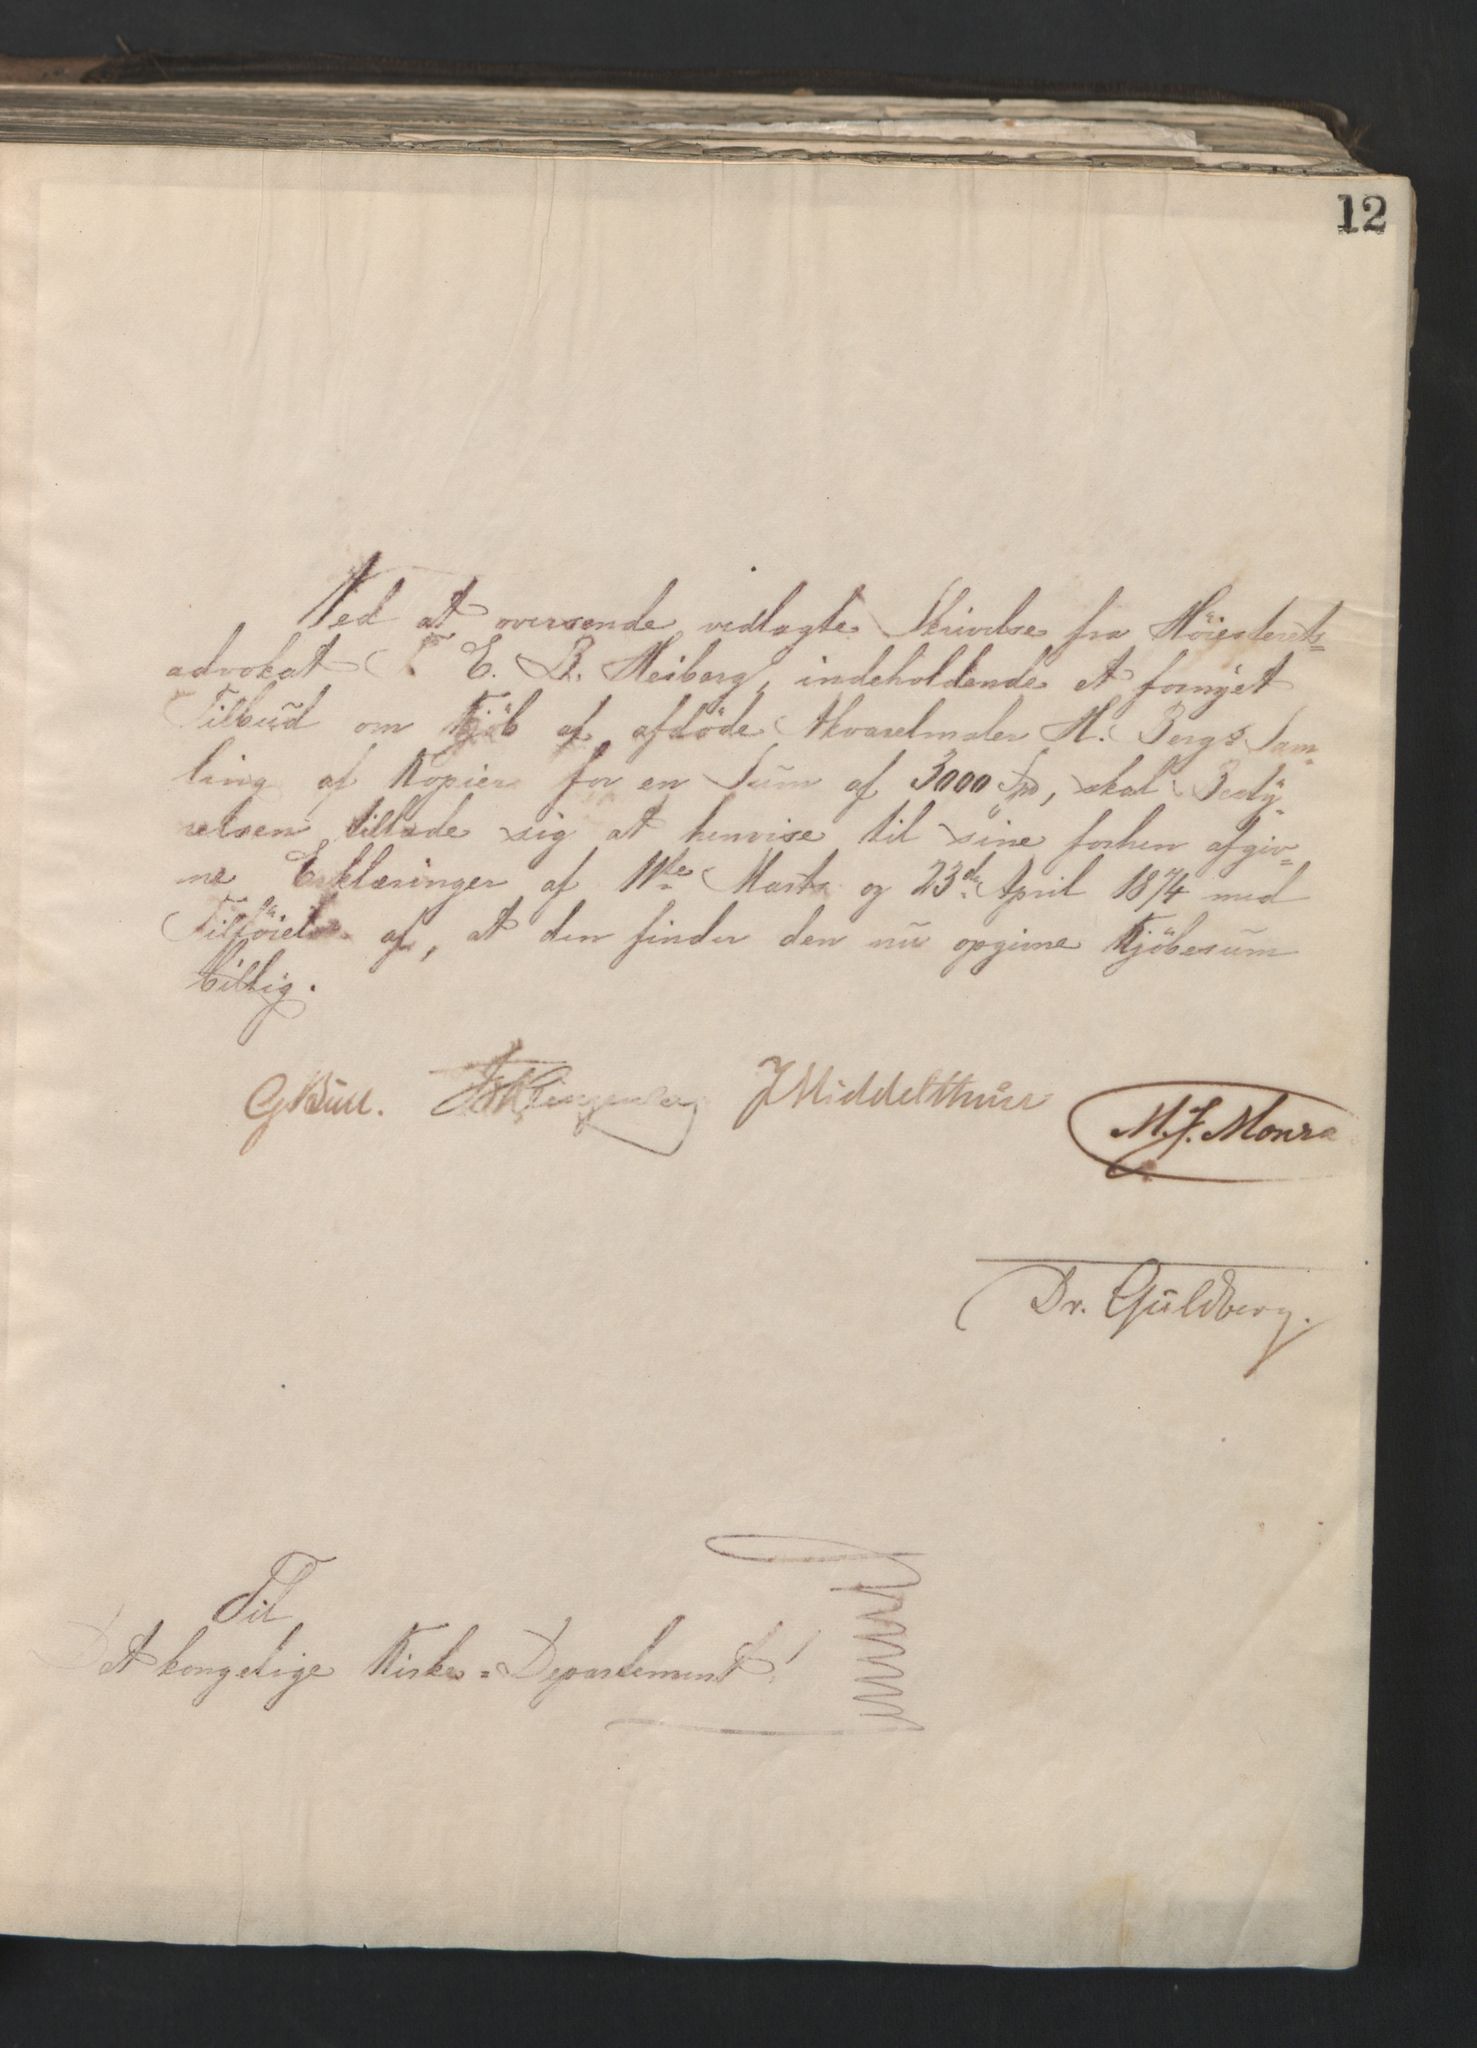 12
Ved at oversende vedlagte Skrivelse fra Höiesterets=
advokat E. R. Heiberg, indeholdende et fornyet
Tilbud om Kjöb af afdöde Akvarelmaler H. Bergs Sam-
ling af Kopier for en Sum af 3000 Spd, skal Besty-
relsen tillade sig at henvise til sine forhen afgiv=
ne Erklæringer af 11te Marts og 23de April 1874 med
Tilföielse af, at den finder den nu opgivne Kjöbesum
billig.
G Bull. Klingenberg J Middelthun M. J. Monra
Dr. Guldberg.
Til
Det kongelige Kirke=Departement!